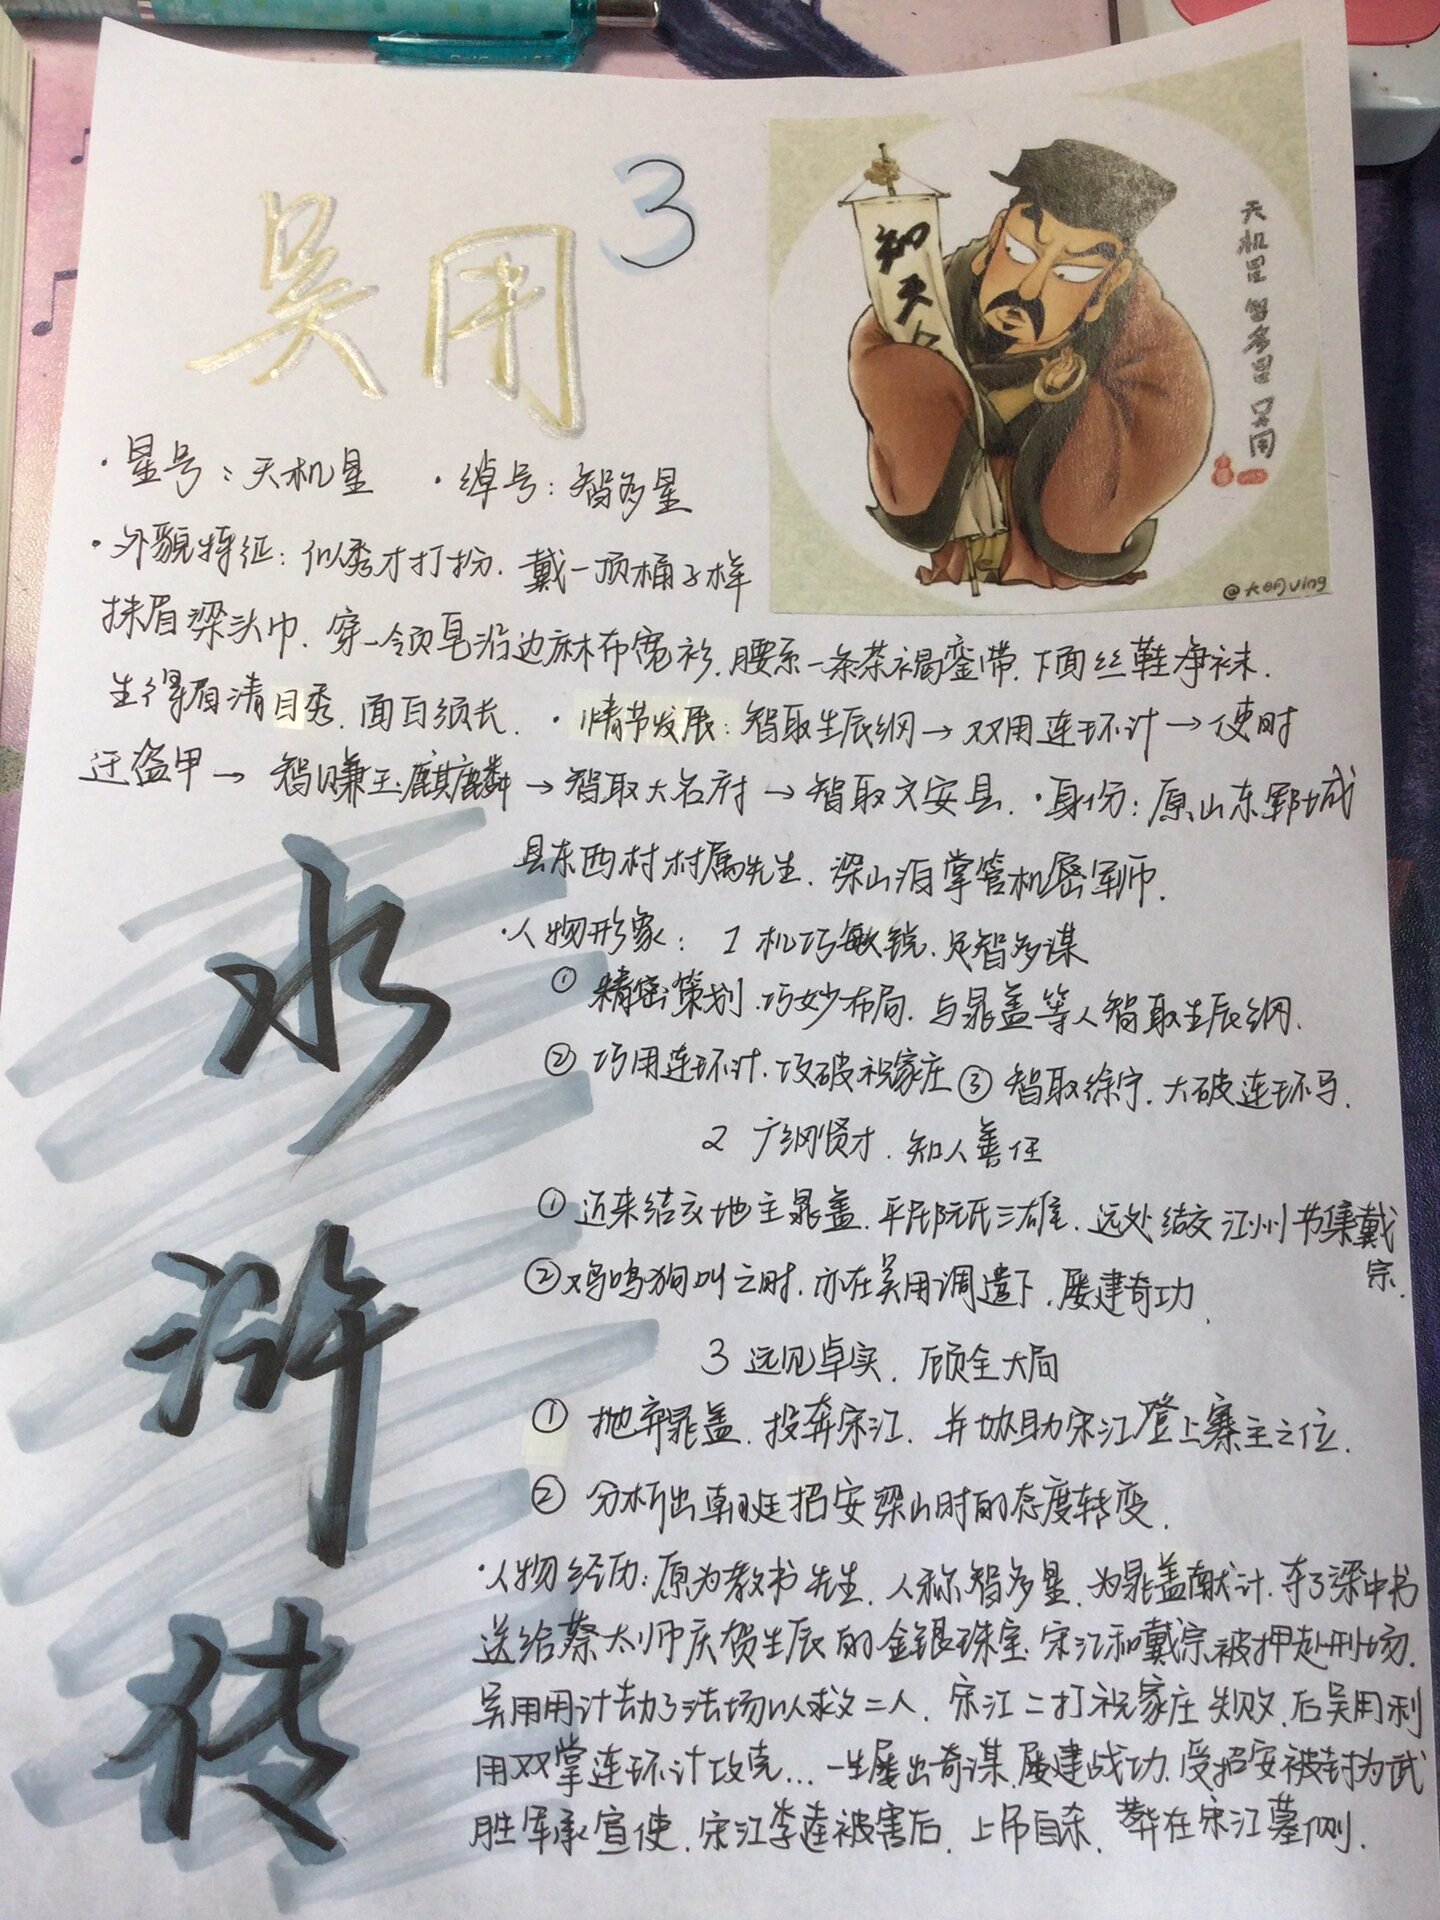 吴用 3
知天
天机星 智多星 吴用
@大明ving
·星号：天机星 ·绰号：智多星
·外貌特征：似秀才打扮．戴一顶桶子样
抹眉梁头巾．穿一领皂沿边麻布宽衫．腰系一条茶褐銮带．下面丝鞋净袜．
生得眉清目秀．面白须长． ·情节发展：智取生辰纲→双用连环计→使时
迁盗甲→智赚玉麒麟→智取大名府→智取文安县．·身份：原山东郓城
县东西村村属先生．梁山泊掌管机密军师．
·人物形象： 1 机巧敏锐．足智多谋
① 精密策划．巧妙布局．与晁盖等人智取生辰纲．
② 巧用连环计．攻破祝家庄 ③ 智取徐宁．大破连环马．
2 广纲贤才．知人善任
① 近来结交地主晁盖．平民阮氏三雄．远处结交江州节集戴
宗．
② 鸡鸣狗叫之时．亦在吴用调遣下．屡建奇功．
3 远见卓实．顾全大局
① 抛弃晁盖．投奔宋江．并协助宋江登上寨主之位．
② 分析出朝廷招安梁山时的态度转变．
·人物经历：原为教书先生．人称智多星．为晁盖献计．夺了梁中书
送给蔡太师庆贺生辰的金银珠宝．宋江和戴宗被押赴刑场．
吴用用计劫了法场以救二人．宋江二打祝家庄失败．后吴用利
用双掌连环计攻克...一生屡出奇谋．屡建战功．受招安被封为武
胜军承宣使．宋江李逵被害后．上吊自杀．葬在宋江墓侧．
水
浒
传